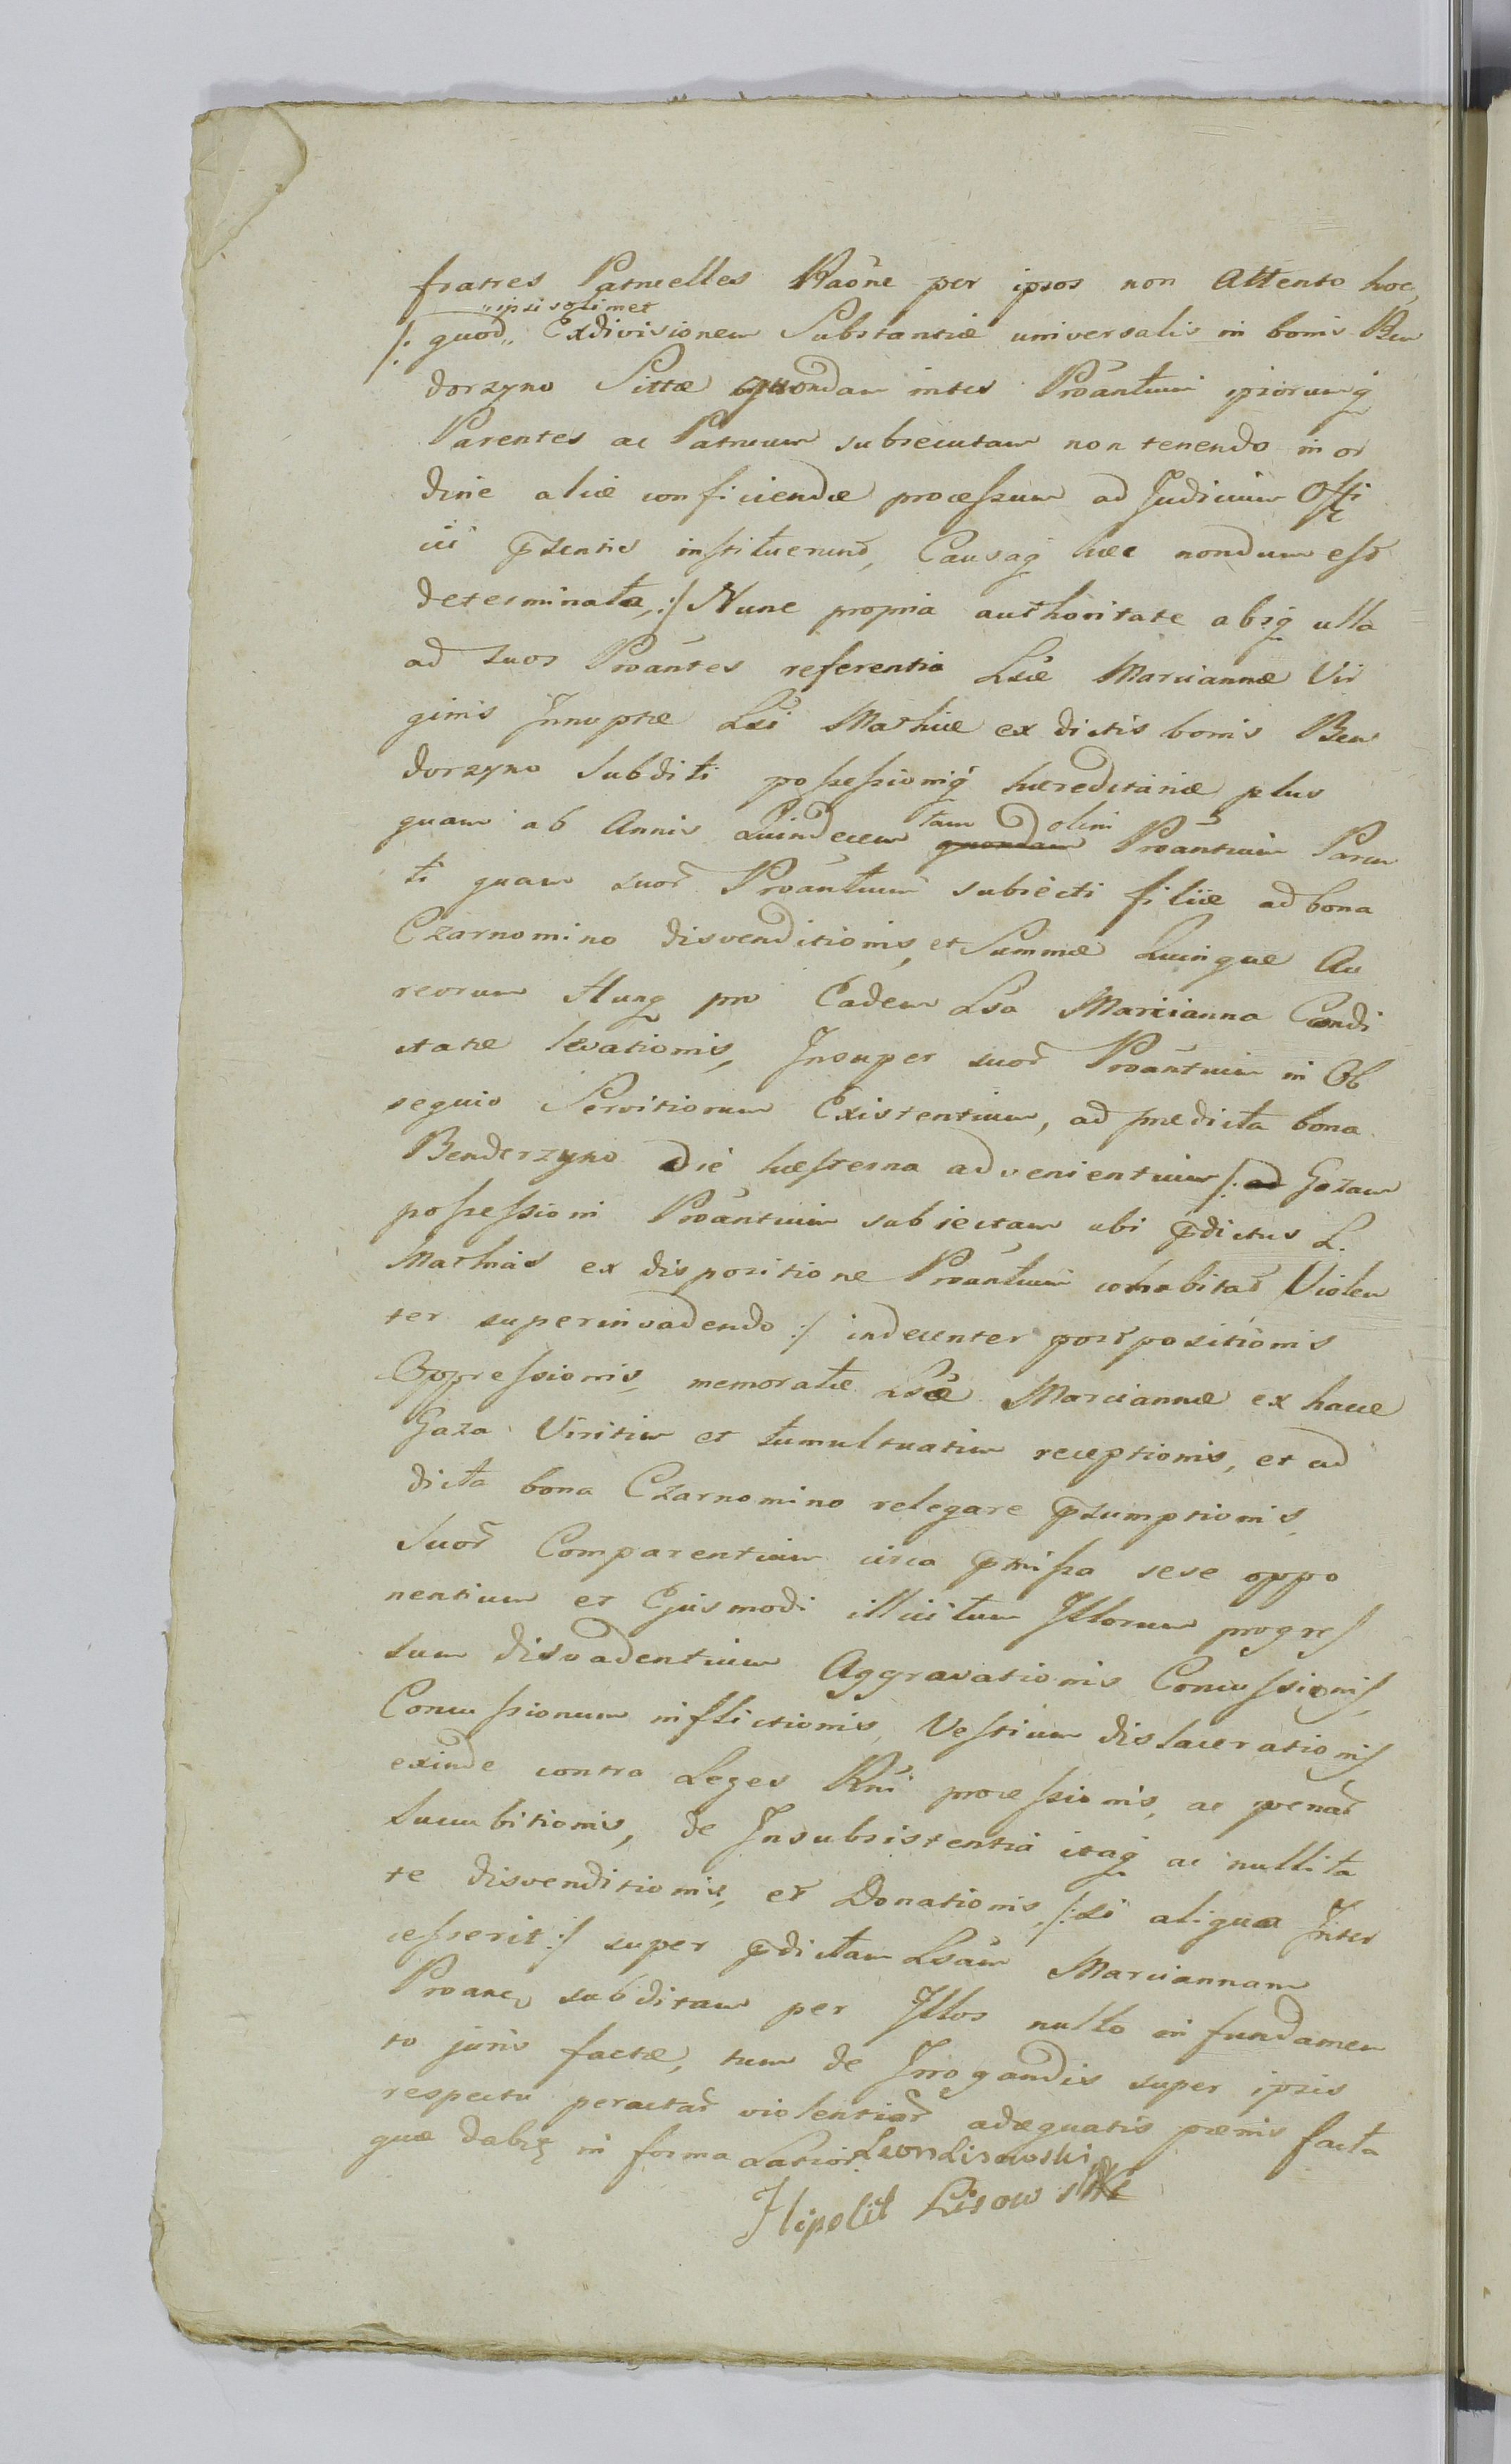 fratres Patruelles Raõne per ipsos non attento hoc,
„ipsi solimet
/: quod„ Exdivisionem Substantiæ universalis in bonis Ben
dorzyno Sittæ quondam inter Proãntium ipsorumq́
Parentes ac Patruum subsecutam non tenendo in or
dine aliæ conficiendæ processum ad Judicium Offi
cii p̃sentis instituerunt, Causaq́ hæc nondum est
determinata, :/ Nunc propria authoritate absq́ ulla
ad suos Proãntes referentia Lsæ Mariannæ Vir
ginis Innuptæ Lsi Mathiæ ex dictis bonis Ben
dorzyno Subditi possessioniq́ hæreditariæ plus
quam ab Annis Quindecem tam olim Proãntium Paren
ti quam suor̃ Proãntium subiecti filiæ ad bona
Czarnomino disvenditionis, et Summæ Quinque Au
reorum Hung pro Eadem Lsa Marcianna Condi
ctatæ levationis, Insuper suor̃ Proãntium in Ob
sequio Servitiorum Existentium, ad prædicta bona
Benderzyno die hesterna advenientium /: Gazam
possessioni Proãntium subiectam ubi p̃dictus L.
Mathias ex dispositione Proãntium cohabitat Violen
ter superinvadendo :/ indecenter postpositionis
Oppressionis, memoratæ Lsæ Marciannæ ex hacce
Gaza Viritim et tumultuatim receptionis, et ad
dicta bona Czarnomino relegare p̃sumptionis,
Suor̃ Comparentium circa p̃missa sese oppo
nentium et Ejusmodi illicitum Illorum progres
sum disvadentium Aggravationis Concussionis,
Concussionum inflictionis, Vestium dislacerationis
exinde contra Leges Rni processionis, ac pænar̃
Succubitionis, de Insubsistentia itaq́ ac nullita
te disvenditionis, et Donationis, /: si aliqua Inter
cesserit :/ super p̃dictam Lsam Marciannam
Proanc, subditam per Illos nullo in fundamen
to juris factæ, tum de Irrogandis super ipsis
respectu peractar̃ violentiar̃ adæquatis pænis facta
quæ dabit̃ in forma Latior̃ Leon Lisowski
Hipolit Lisowski